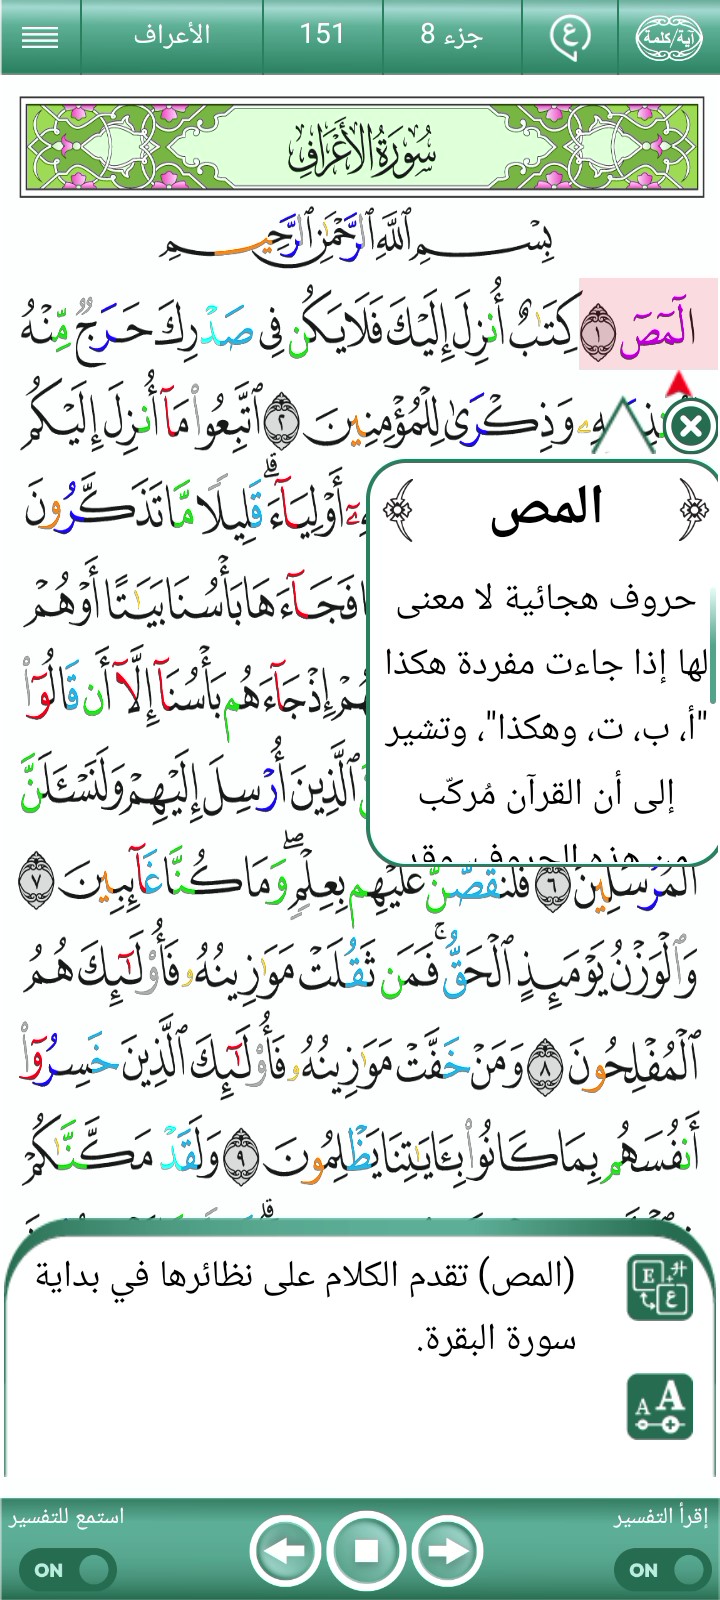 آية/كلمة
ع
جزء 8
151
الأعراف
سُورَةُ الأَعْرَافِ
بِسْمِ ٱللَّهِ ٱلرَّحْمَٰنِ ٱلرَّحِيمِ
الٓمٓصٓ ١ كِتَٰبٌ أُنزِلَ إِلَيْكَ فَلَا يَكُن فِى صَدْرِكَ حَرَجٌ مِّنْهُ
وَذِكْرَىٰ لِلْمُؤْمِنِينَ ٢ ٱتَّبِعُوا۟ مَآ أُنزِلَ إِلَيْكُم
أَوْلِيَآءَ ۗ قَلِيلًا مَّا تَذَكَّرُونَ
فَجَآءَهَا بَأْسُنَا بَيَٰتًا أَوْ هُمْ
إِذْ جَآءَهُم بَأْسُنَآ إِلَّآ أَن قَالُوٓا۟
ٱلَّذِينَ أُرْسِلَ إِلَيْهِمْ وَلَنَسْـَٔلَنَّ
ٱلْمُرْسَلِينَ ٦ فَلَنَقُصَّنَّ عَلَيْهِم بِعِلْمٍ ۖ وَمَا كُنَّا غَآئِبِينَ ٧
وَٱلْوَزْنُ يَوْمَئِذٍ ٱلْحَقُّ ۚ فَمَن ثَقُلَتْ مَوَٰزِينُهُۥ فَأُو۟لَٰٓئِكَ هُمُ
ٱلْمُفْلِحُونَ ٨ وَمَنْ خَفَّتْ مَوَٰزِينُهُۥ فَأُو۟لَٰٓئِكَ ٱلَّذِينَ خَسِرُوٓا۟
أَنفُسَهُم بِمَا كَانُوا۟ بِـَٔايَٰتِنَا يَظْلِمُونَ ٩ وَلَقَدْ مَكَّنَّٰكُمْ
المص
حروف هجائية لا معنى
لها إذا جاءت مفردة هكذا
"أ، ب، ت، وهكذا"، وتشير
إلى أن القرآن مُركّب
من هذه الحروف وقد
(المص) تقدم الكلام على نظائرها في بداية
سورة البقرة.
E
ع
A A
إقرأ التفسير
استمع للتفسير
ON
ON